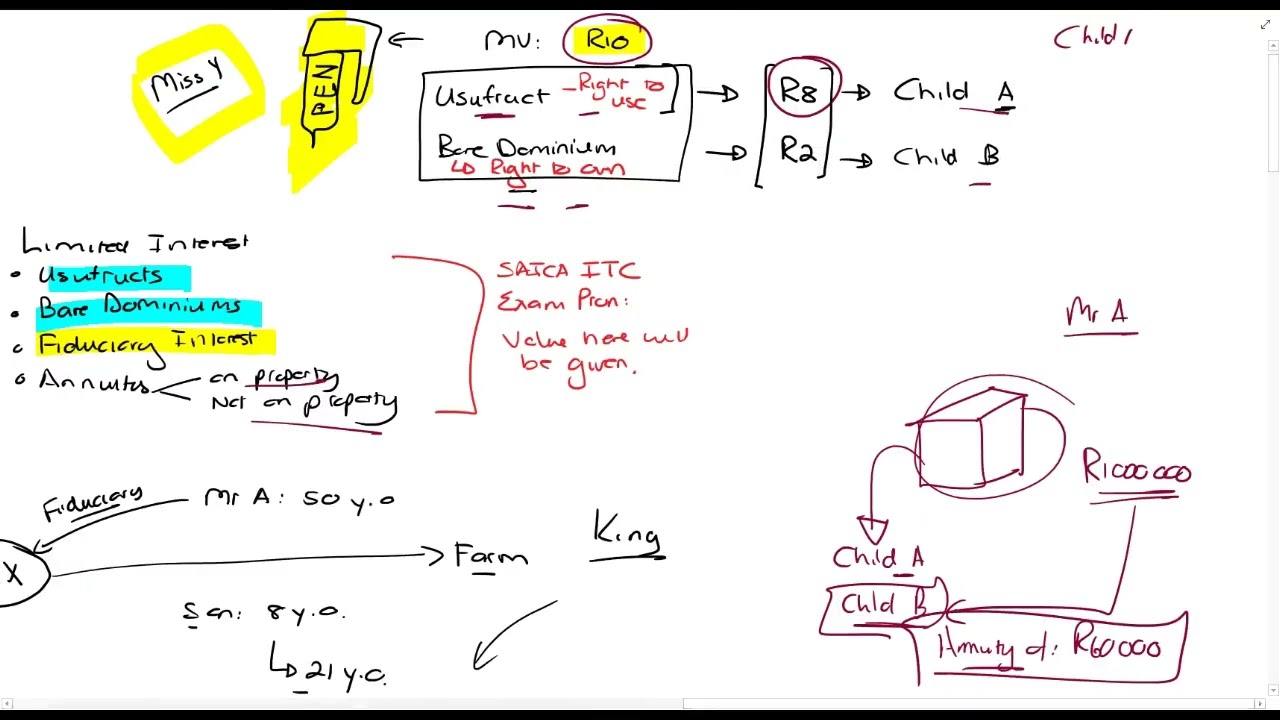 Miss Y
PEN
MV: R10
Usufruct - Right to use
R8
Child A
Bare Dominium
↳ Right to own
R2
Child B
Child
Limited Interest
• Usufructs
• Bare Dominiums
• Fiduciary Interest
• Annuites
on property
Not on property
SAICA ITC
Exam Pron:
Value here will
be given.
Fiduciary
Mr A: 50 y.o
X
Farm
King
Son: 8 y.o.
↳ 21 y.o.
Mr A
R1000000
Child A
Child B
Annuity of: R60000